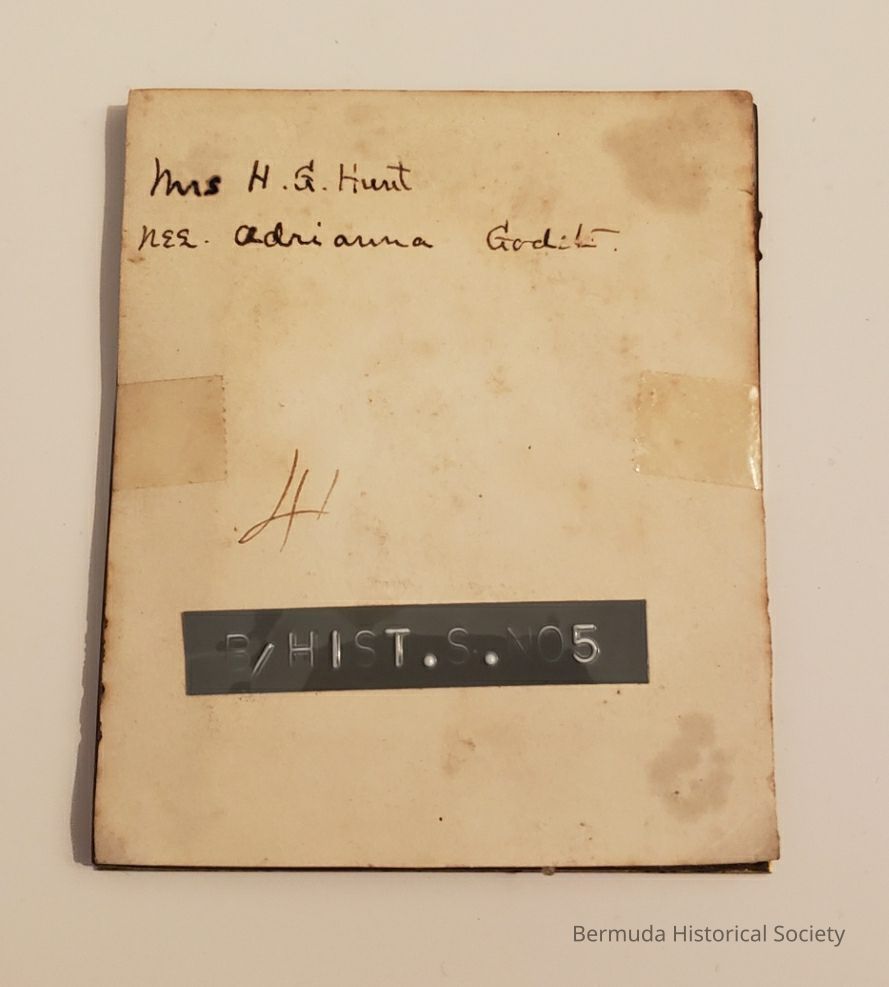 Mrs H.G. Hunt
NEE. Adrianna
41
B/HIST.S.NO5
Bermuda Historical Society